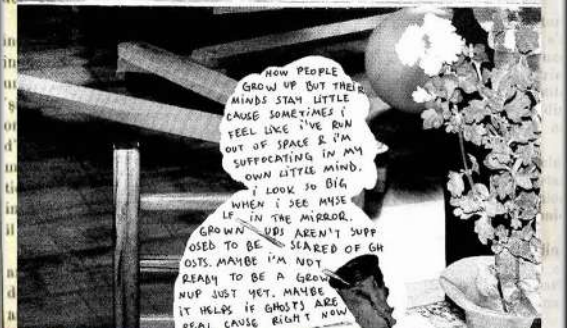 HOW PEOPLE
GROW UP BUT THEIR
MINDS STAY LITTLE
CAUSE SOMETIMES i
FEEL LIKE i'VE RUN
OUT OF SPACE & i'M
SUFFOCATING IN MY
OWN LITTLE MIND.
i LOOK SO BIG
WHEN i SEE MYSE
LF IN THE MIRROR.
GROWN UPS AREN'T SUPP
OSED TO BE SCARED OF GH
OSTS. MAYBE i'M NOT
READY TO BE A GROW
NUP JUST YET. MAYBE
IT HELPS IF GHOSTS ARE
REAL CAUSE RIGHT NOW